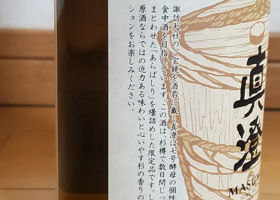 諏訪大社のご宝鏡を酒名に戴く真澄は七号酵母の個性
食中酒を目指しています。この酒は、杉樽で数日間じっ
まとわせた「あらばしり」を堪詰めした限定品です。し
原酒ならではの迫力ある味わいと心いやす杉の香りの
ションをお楽しみください。
真澄
MAS